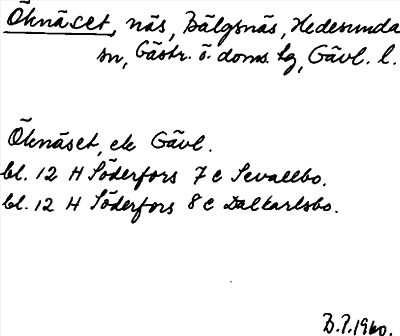 Öknäset, näs, Bälgsnäs, Hedesunda
sn, Gästr. ö. doms. lg, Gävl. l.
Öknäset, ek Gävl.
bl. 12 H Söderfors 7 c Sevallbo.
bl. 12 H Söderfors 8 c Dalkarlsbo.
B.P. 1960.